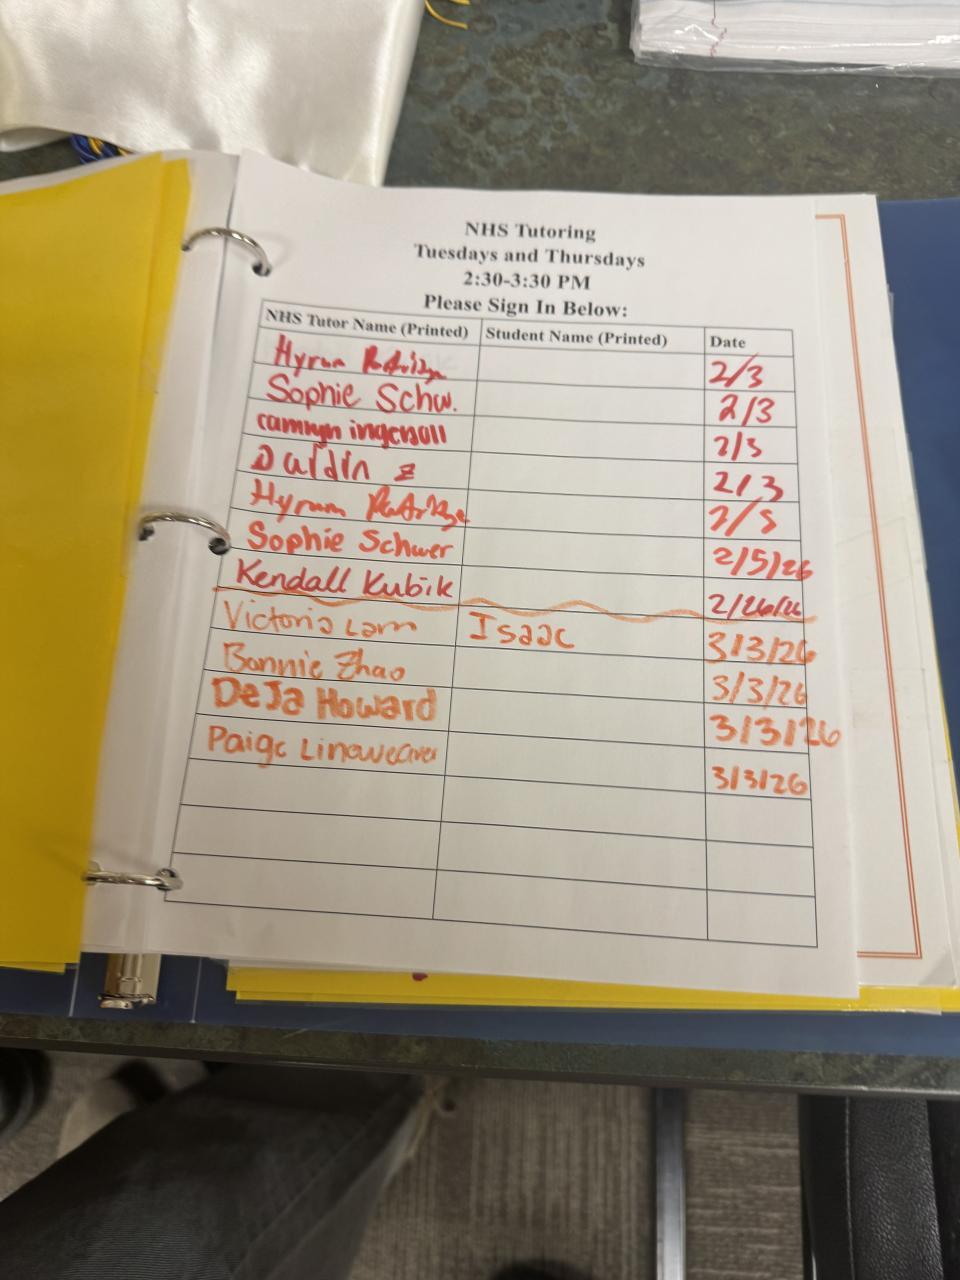 NHS Tutoring
Tuesdays and Thursdays
2:30-3:30 PM
Please Sign In Below:
NHS Tutor Name (Printed) Student Name (Printed) Date
Hyrum 2/3
Sophie Schw. 2/3
camryn ingersoll 2/3
z 2/3
Hyrum 2/5
Sophie Schwer 2/5/26
Kendall Kubik 2/26/26
Victoria Lam Isaac 3/3/26
Bonnie Zhao 3/3/26
DeJa Howard 3/3/26
Paige Lineweaver 3/3/26